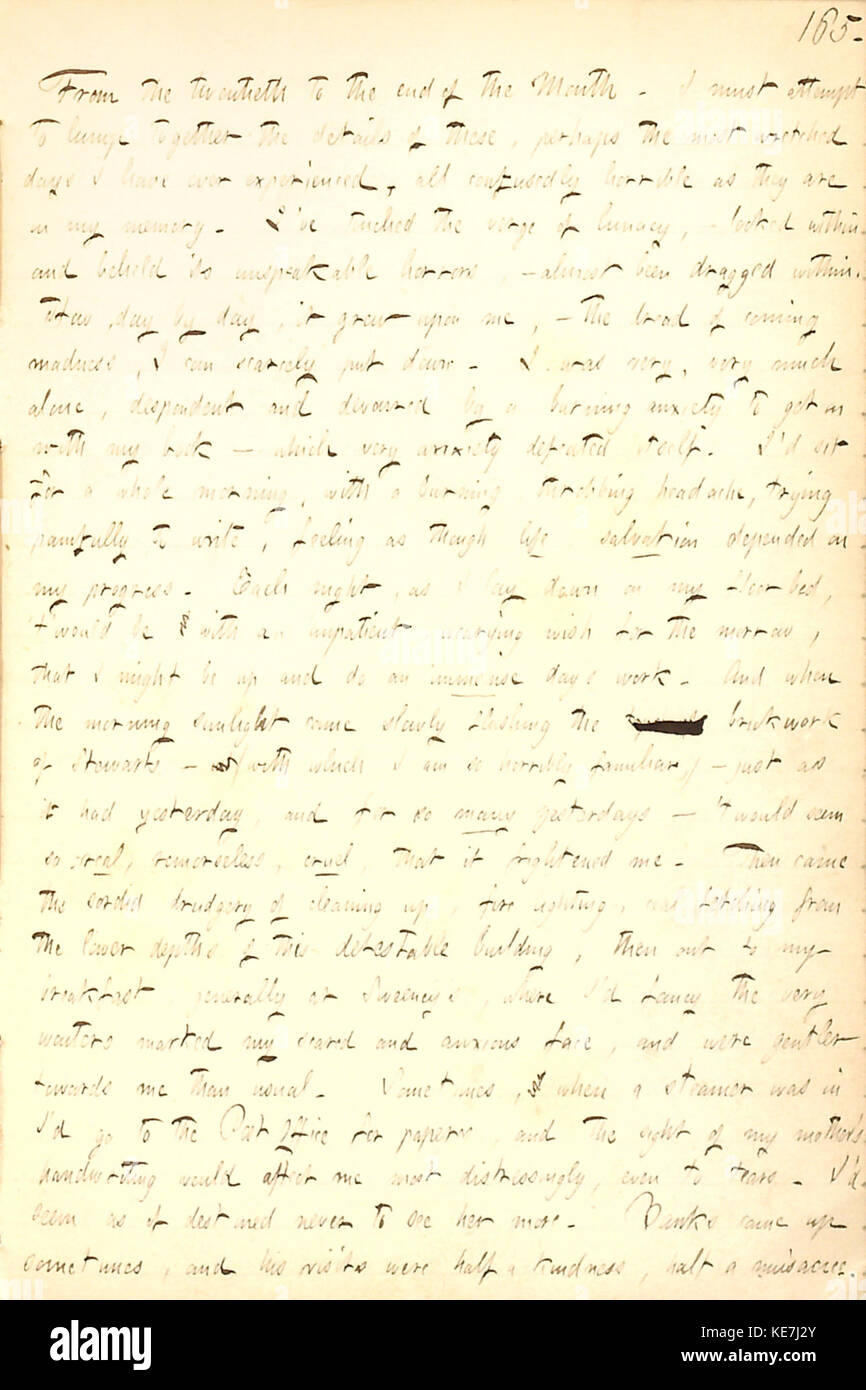 185.
From the twentieth to the end of the Month - I must attempt
to lump together the details of these, perhaps the most wretched
days I have ever experienced, all confusedly horrible as they are
in my memory. I've touched the verge of lunacy, - looked within
and beheld its unspeakable horrors, - almost been dragged within.
How day by day, it grew upon me, - the dread of coming
madness, I can scarcely put down. I was very, very much
alone, despondent and devoured by a burning anxiety to get on
with my book - which very anxiety defeated itself. I'd sit
for a whole morning, with a burning, throbbing headache, trying
painfully to write, feeling as though life salvation depended on
my progress. Each night, as I lay down on my floor bed,
t'would be with an impatient wearying wish for the morrow,
that I might be up and do an immense days work. And when
the morning sunlight came slowly flushing the brickwork
of Stewarts - (with which I am so horribly familiar,) - just as
it had yesterday, and for so many yesterdays - 't would seem
so real, remorseless, cruel, that it frightened me. Then came
the sordid drudgery of cleaning up, fire lighting, fetching from
the lower depths of this detestable building, then out to my
breakfast generally at Sweeney's, where I'd fancy the very
waiters marked my scared and anxious face, and were gentler
towards me than usual. Sometimes, when a steamer was in
I'd go to the Post Office for papers, and the sight of my mothers
handwriting would affect me most distressingly, even to tears. I'd
seem as if destined never to see her more. Banks came up
sometimes, and his visits were half a kindness, half a
alamy
Image ID: KE7J2Y
www.alamy.com